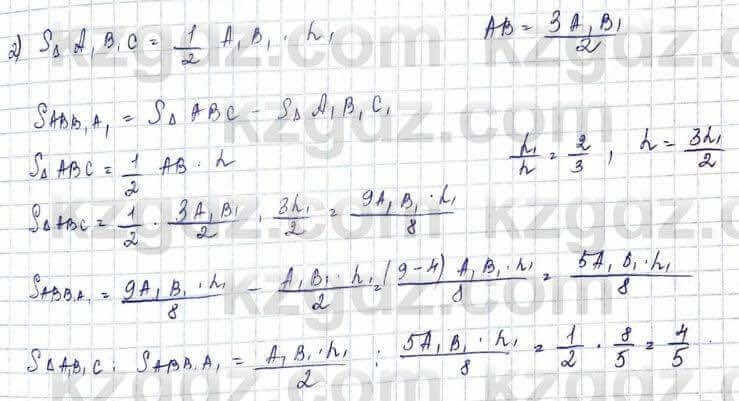 2) S△ A₁B₁C = 1/2 A₁B₁ · h₁   AB = 3A₁B₁/2
S_ABB₁A₁ = S△ ABC - S△ A₁B₁C₁
S△ ABC = 1/2 AB · h   h₁/h = 2/3, h = 3h₁/2
S△ABC = 1/2 · 3A₁B₁/2 · 3h₁/2 = 9A₁B₁·h₁/8
S_ABB₁A₁ = 9A₁B₁·h₁/8 - A₁B₁·h₁/2 = (9-4)A₁B₁·h₁/8 = 5A₁B₁·h₁/8
S△A₁B₁C : S_ABB₁A₁ = A₁B₁·h₁/2 : 5A₁B₁·h₁/8 = 1/2 · 8/5 = 4/5.
kzgdz.com